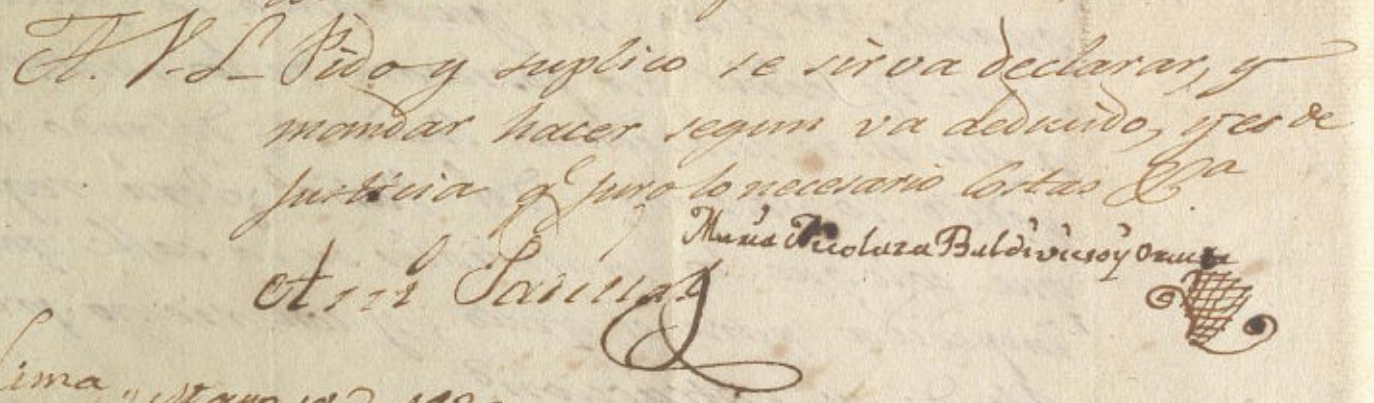 A. V. S. Pido y suplico se sirva declarar, y
mandar hacer segun va deducido, y es de
Justicia q.e juro lo necesario Costas &.a
Maria Nicolaza Baldivieso y
Lima